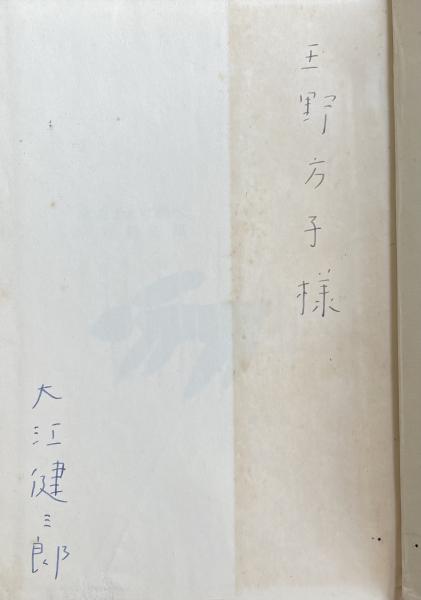 玉野方子様
大江健三郎